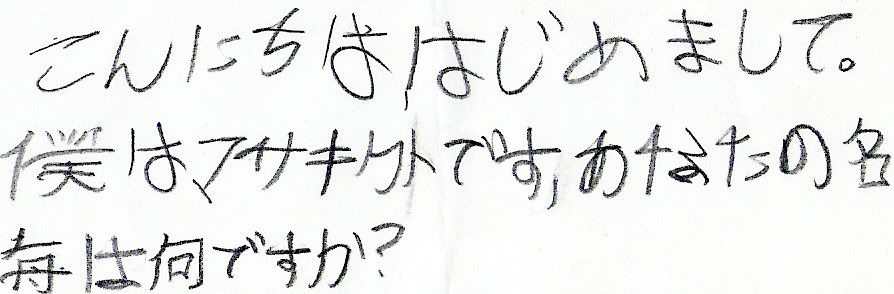 こんにちは,はじめまして。
僕は、アサキクトです,あなたの名
毎は何ですか?